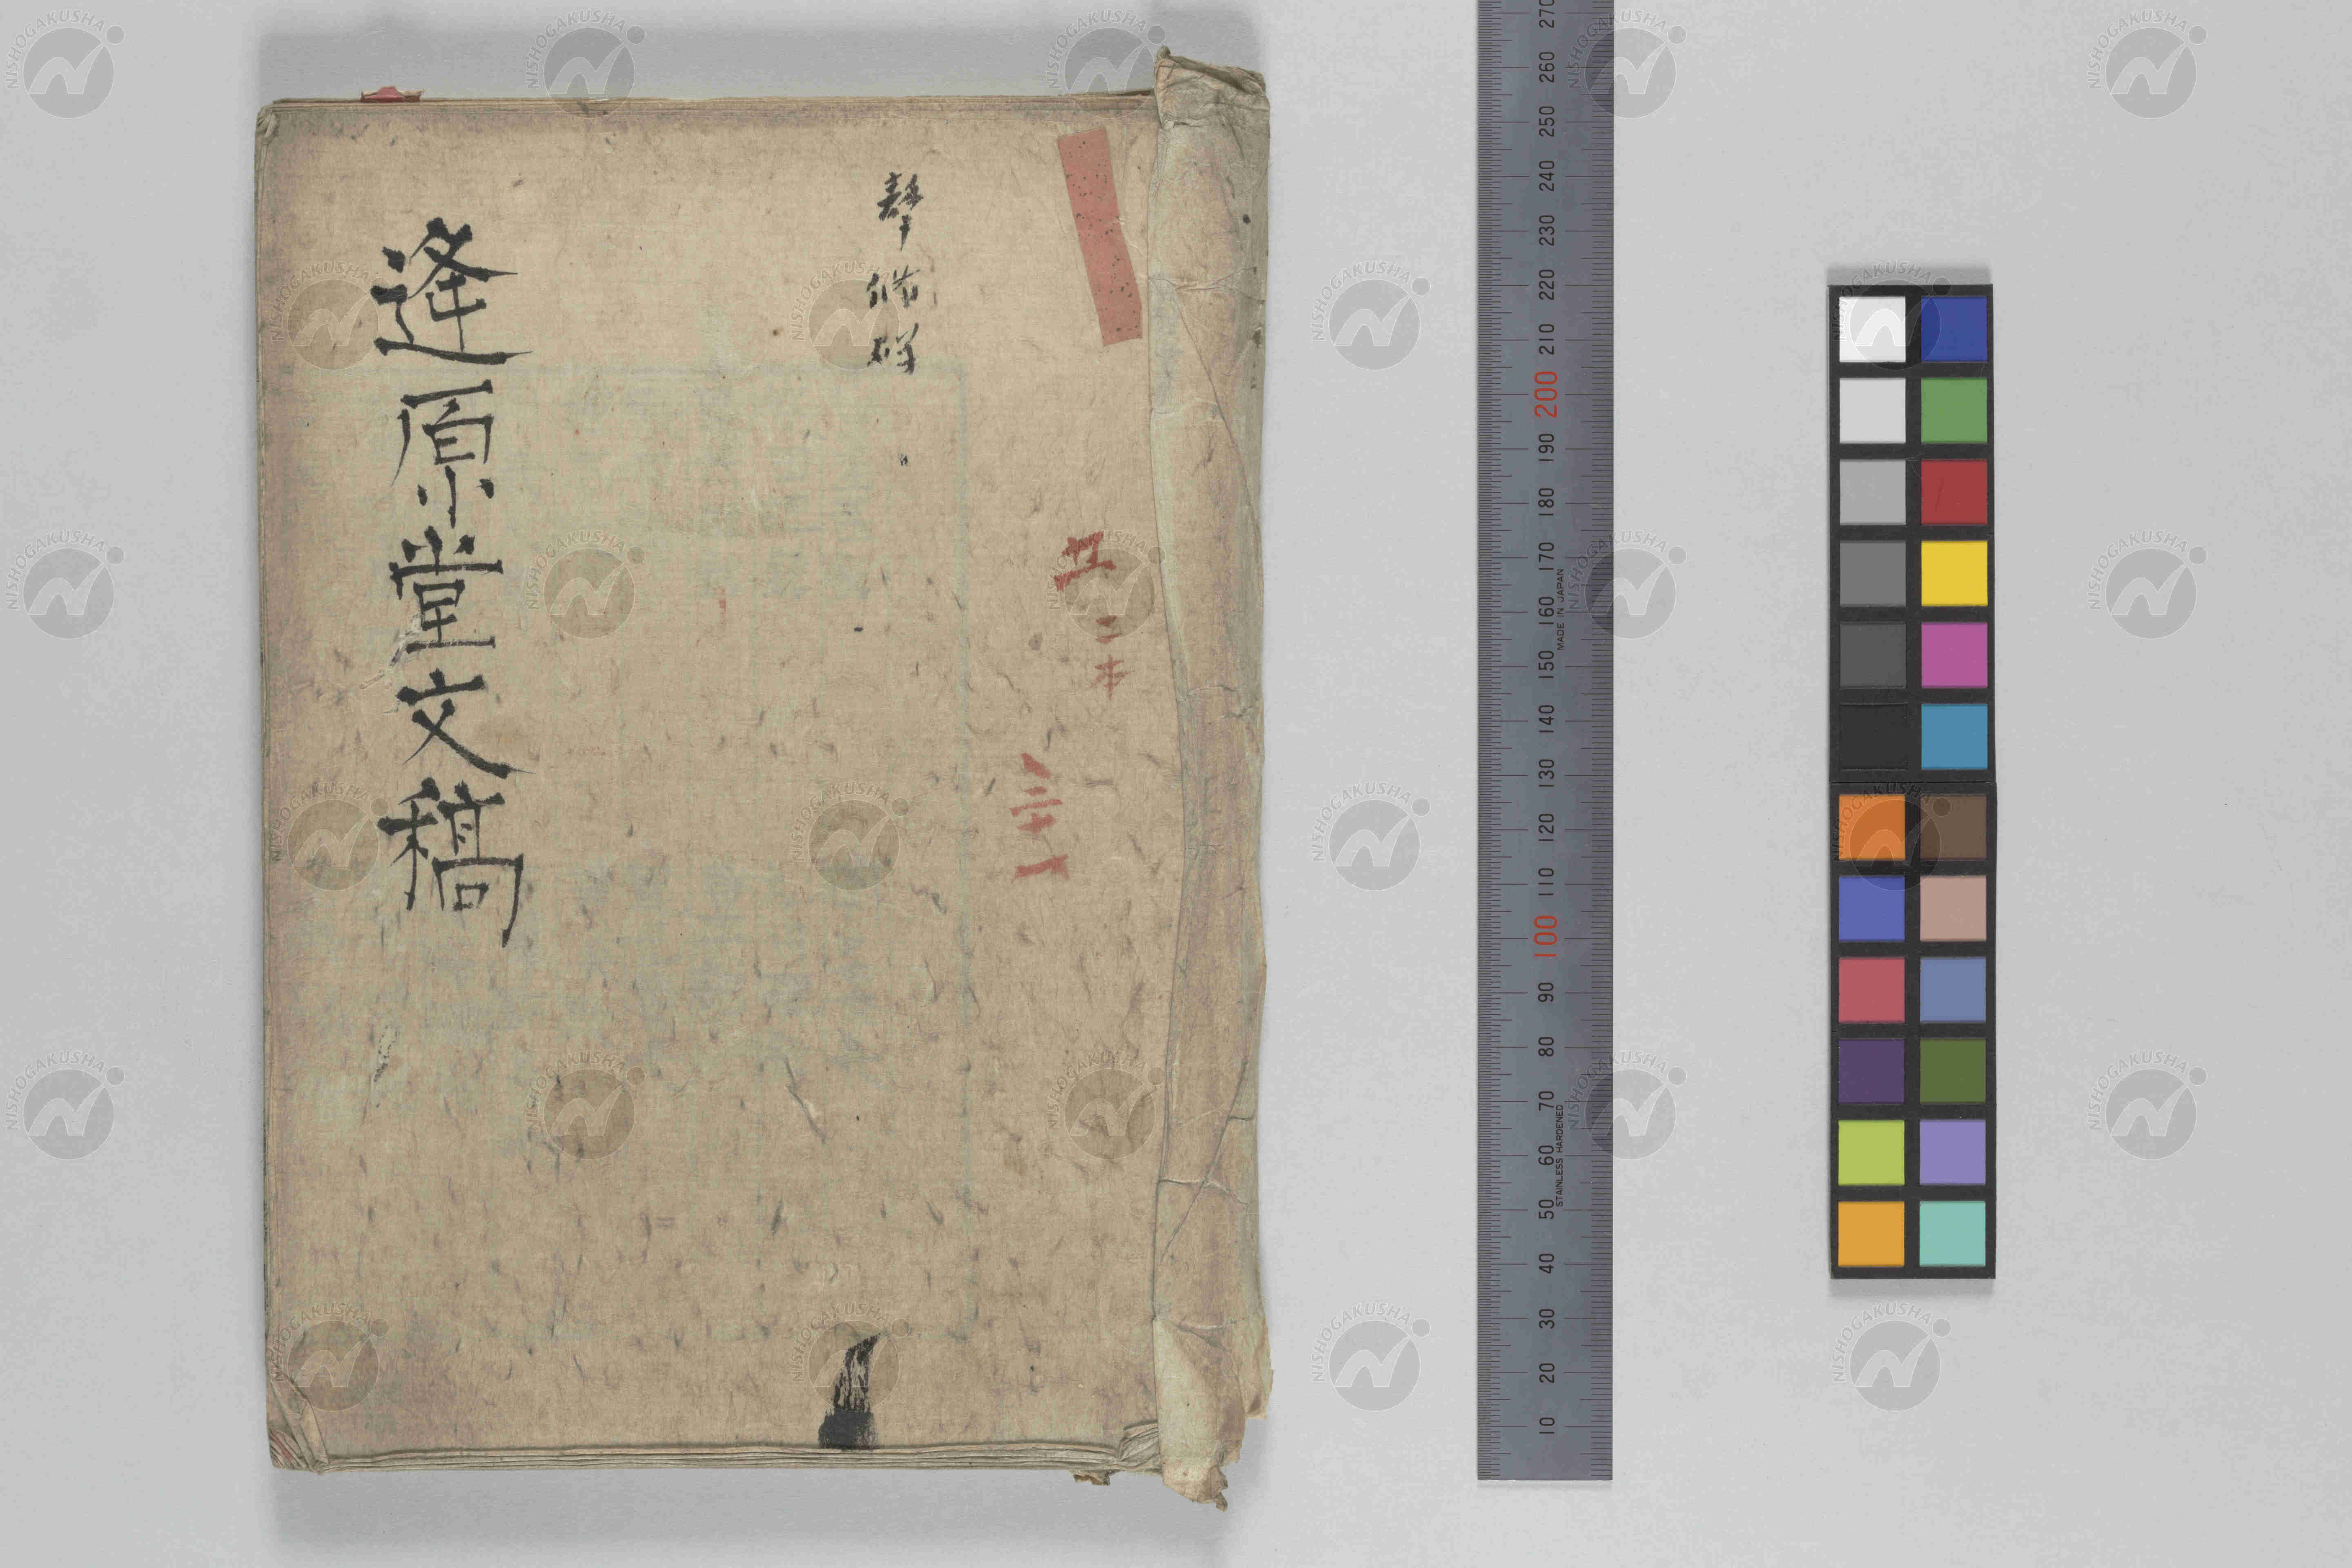 静脩祠
逢原堂文稿
二本
270
260
250
240
230
220
210
200
190
180
170
160
150
140
130
120
110
100
90
80
70
60
50
40
30
20
10
MADE IN JAPAN
STAINLESS HARDENED
NISHOGAKUSHA